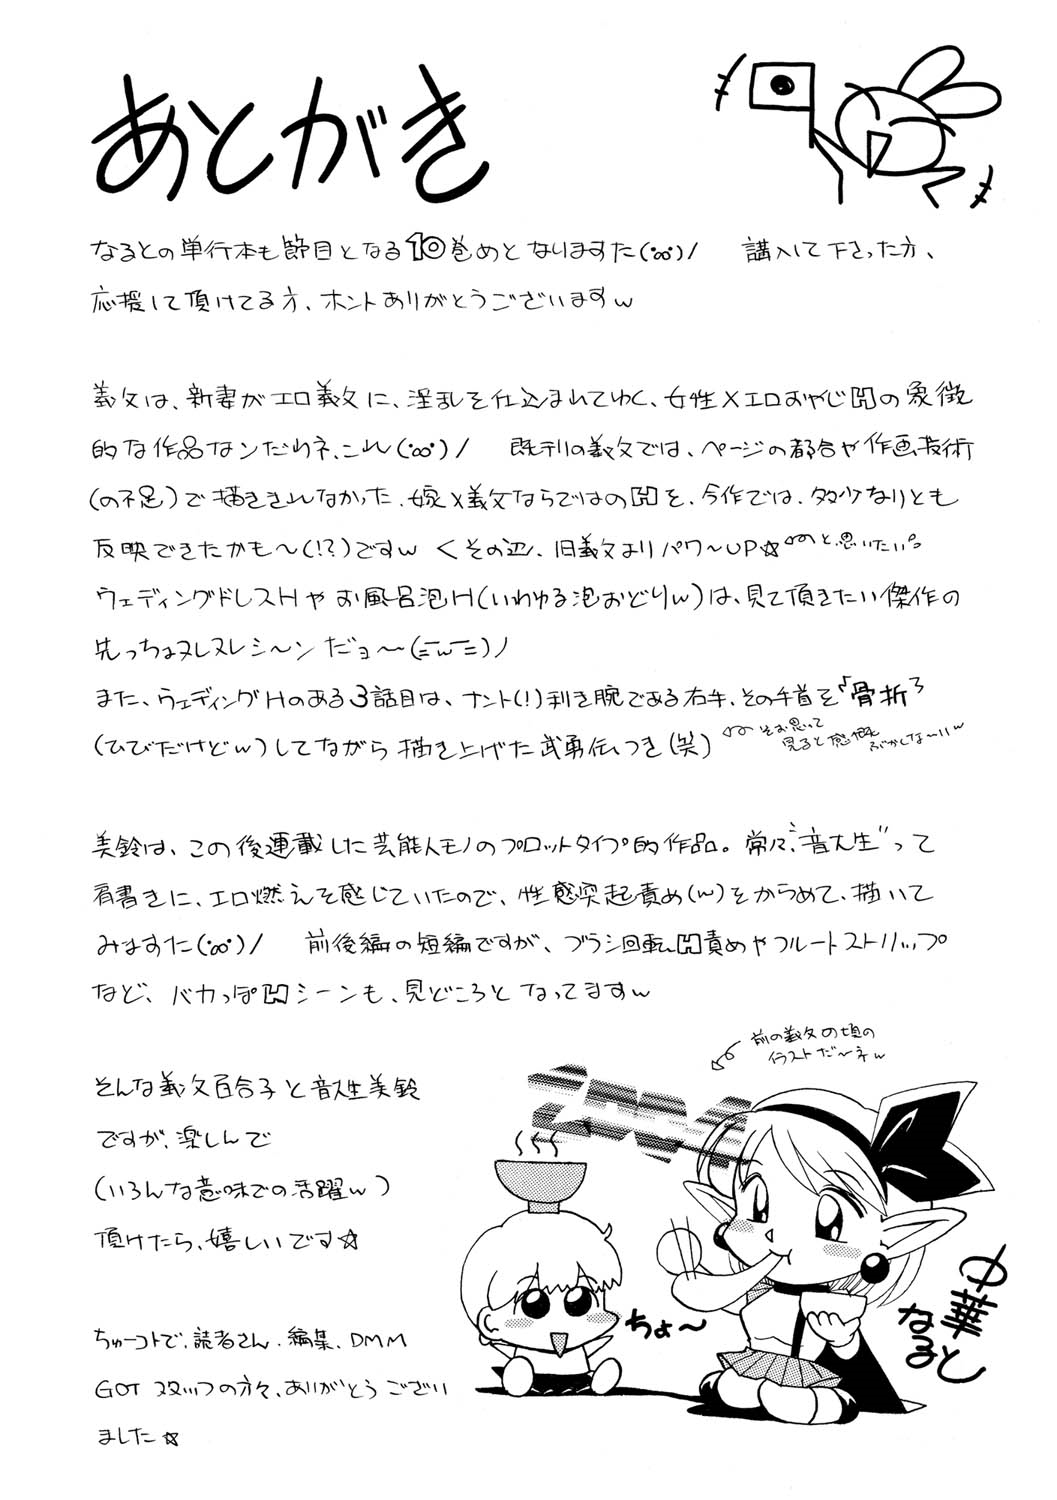 あとがき
なるとの単行本も節目となる10巻めとなりますた(°∞°)/　講入して下さった方、
応援して頂けてる方、ホントありがとうございますw
義父は、新妻がエロ義父に、淫乱を仕込まれてゆく、女性×エロおやじHの象徴
的な作品なンだわネ、これ(°∞°)/　既刊の義父では、ページの都合や作画技術
(の不足)で描ききれなかった、嫁×義父ならではのHを、今作では、多少なりとも
反映できたかも〜(!?)ですw くその辺、旧義父よりパワ〜UP☆ と思いたい。
ウェディングドレスHやお風呂泡H(いわゆる泡おどりw)は、見て頂きたい傑作の
先っちょヌレヌレシ〜ンだョ〜(=w=)ノ
また、ウェディングHのある3話目は、ナント(!)利き腕である右手、その手首を“骨折”
(ひびだけどw)してながら描き上げた武勇伝つき(笑)
そお思って
見ると感慨
ぶかしな〜いw
美鈴は、この後連載した芸能人モノのプロットタイプ的作品。常々、“音大生”って
肩書きに、エロ燃えを感じていたので、性感突起責め(w)をからめて、描いて
みますた(°∞°)/　前後編の短編ですが、ブラシ回転H責めやフルートストリップ
など、バカっぽHシーンも、見どころとなってますw
前の義父の頃の
イラストだ〜ネw
そんな義父百合子と音大生美鈴
ですが、楽しんで
(いろんな意味での活躍w)
頂けたら、嬉しいです☆
ちょ〜
中華
なると
ちゅーコトで、読者さん、編集、DMM
GOTスタッフの方々、ありがとうござい
ました☆